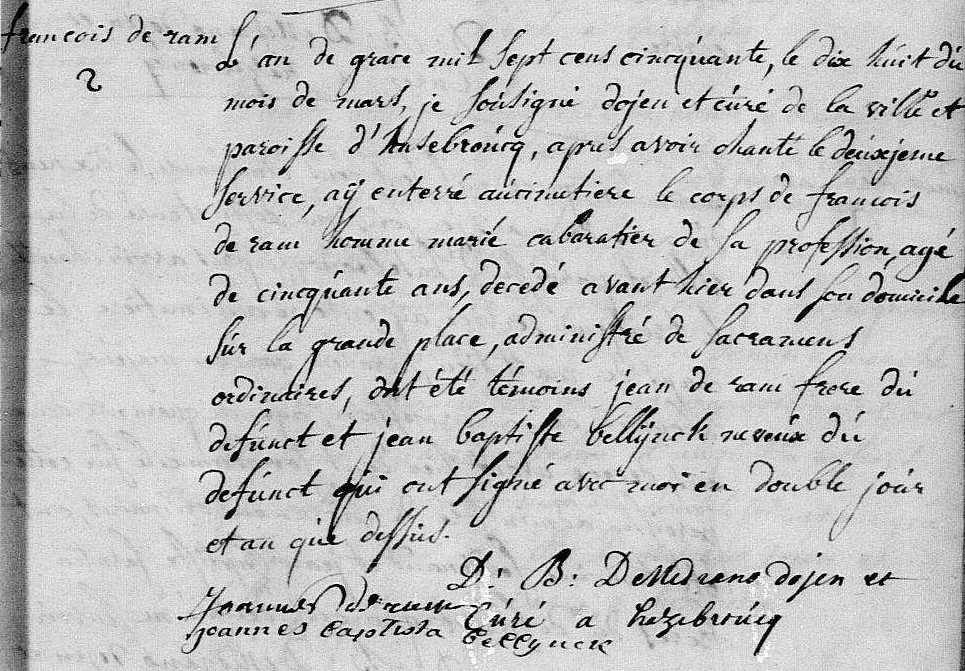 francois de ram
2
L'an de grace mil sept cens cincquante, le dix huit du
mois de mars, je soùsigné dojen et cùré de la ville et
paroisse d'hasebroùcq, apres avoir chanté le deùxjeme
service, aÿ enterré aùcimetiere le corps de francois
de ram homme marié cabaratier de sa profession, agé
de cincqùante ans, decedé avant hier dans son domicile
sùr la grande place, administré de sacramens
ordinaires, ont été témoins jean de ram frere dù
defùnct et jean baptiste bellÿnck neveùx dù
defùnct qùi ont signé avec moi en double joùr
et an qùe dessùs.
D: B: DeMedrano dojen et
Cùré a hazebroùcq
Joannes de ram
Joannes baptista bellynck